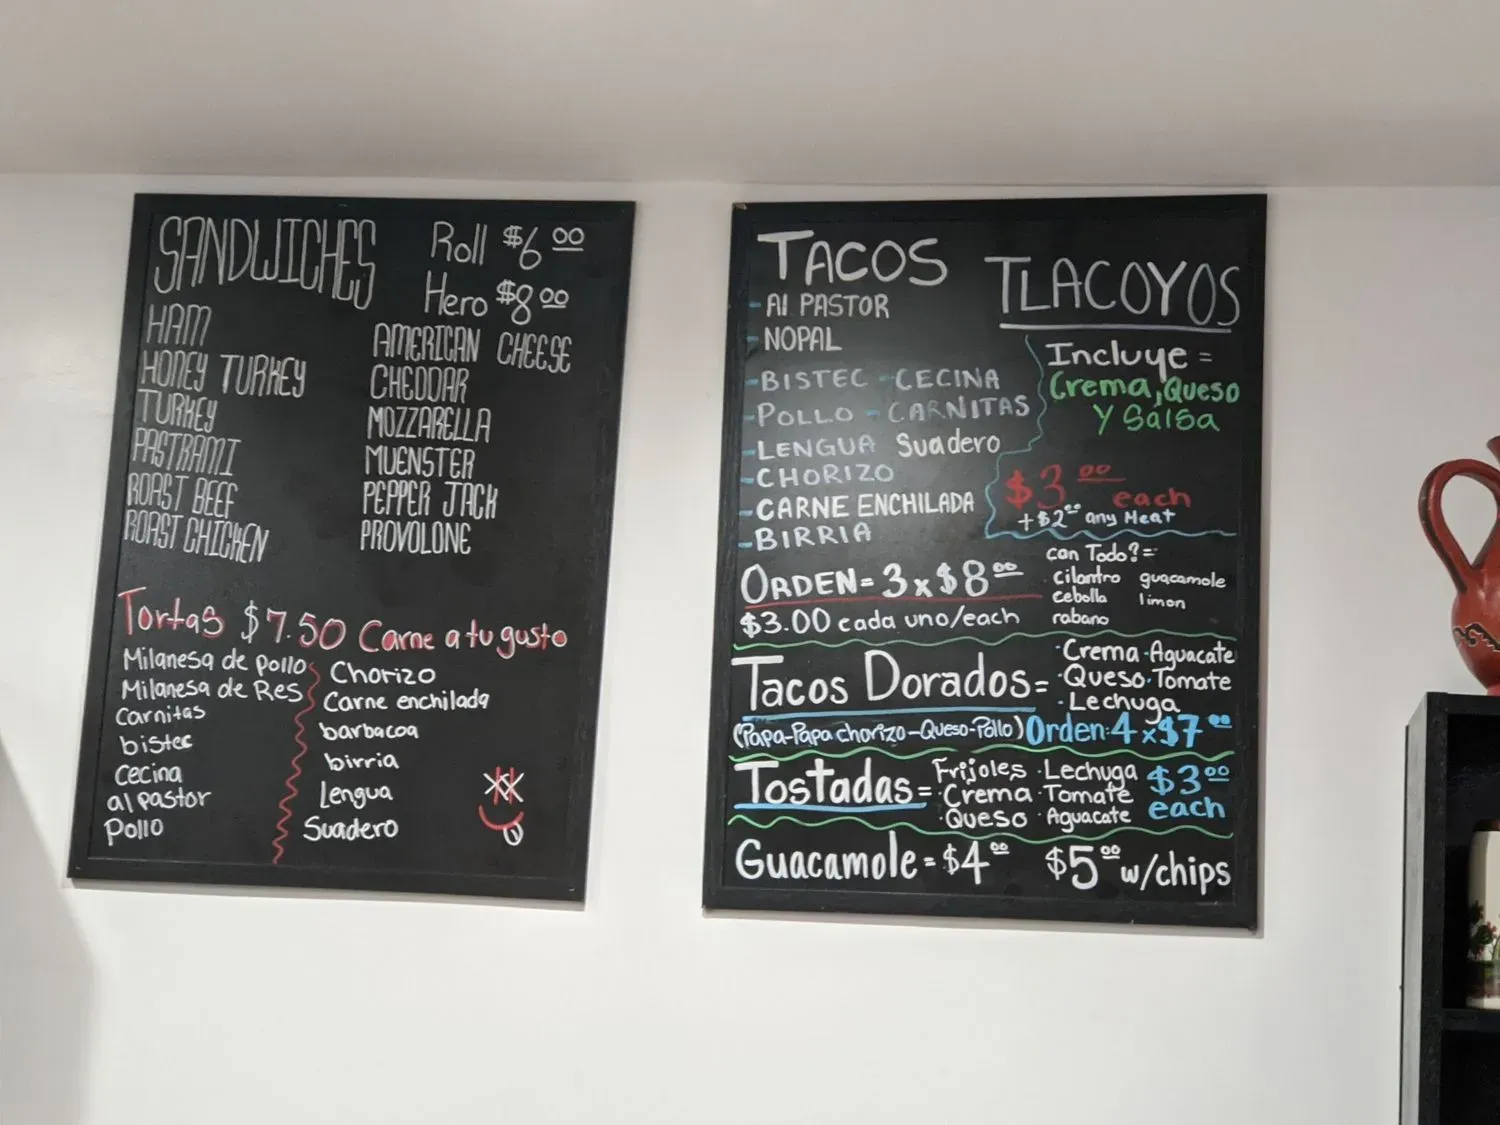 SANDWICHES
Roll $6.00
Hero $8.00
HAM
HONEY TURKEY
TURKEY
PASTRAMI
ROAST BEEF
ROAST CHICKEN
AMERICAN CHEESE
CHEDDAR
MOZZARELLA
MUENSTER
PEPPER JACK
PROVOLONE
Tortas $7.50 Carne a tu gusto
Milanesa de pollo
Milanesa de Res
Carnitas
bistec
Cecina
al pastor
Pollo
Chorizo
Carne enchilada
barbacoa
birria
Lengua
Suadero
TACOS
-Al PASTOR
-NOPAL
-BISTEC -CECINA
-POLLO -CARNITAS
-LENGUA Suadero
-CHORIZO
-CARNE ENCHILADA
-BIRRIA
ORDEN=3x$8.00
$3.00 cada uno/each
TLACOYOS
Incluye =
Crema, Queso
Y Salsa
$3.00 each
+$2.00 any Meat
con Todo?=
cilantro guacamole
cebolla limon
rabano
Tacos Dorados=
·Crema·Aguacate
·Queso·Tomate
·Lechuga
(Papa-Papa chorizo-Queso-Pollo) Orden:4x$7.00
Tostadas=
Frijoles ·Lechuga
·Crema ·Tomate
·Queso ·Aguacate
$3.00
each
Guacamole=$4.00 $5.00 w/chips